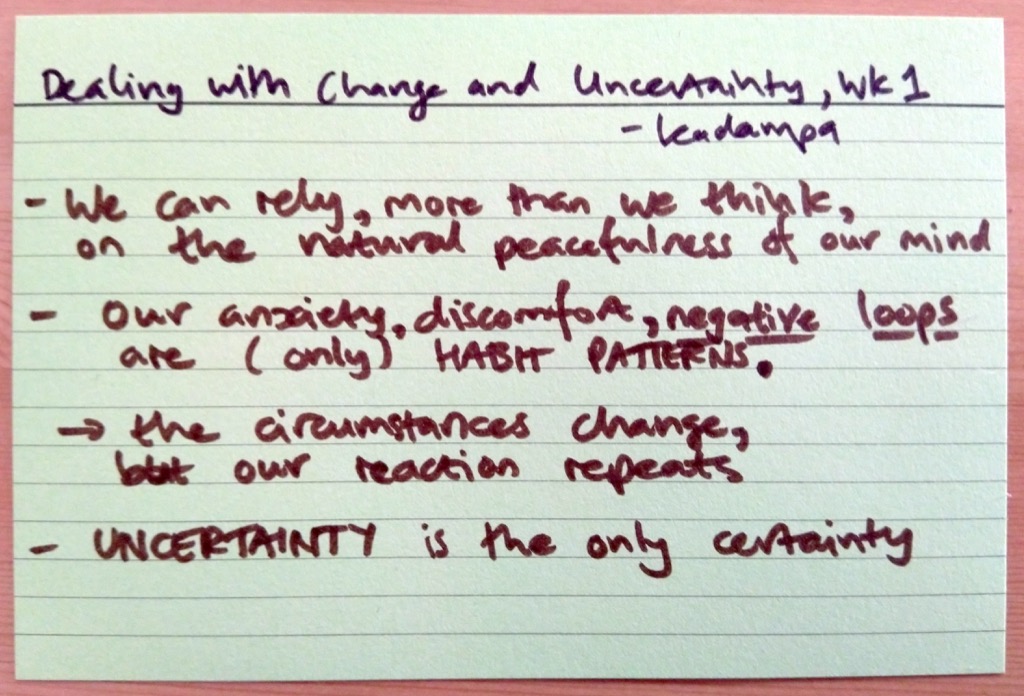 Dealing with Change and Uncertainty, Wk 1
- Kadampa
- We can rely, more than we think,
on the natural peacefulness of our mind
- Our anxiety, discomfort, negative loops
are (only) HABIT PATTERNS.
→ the circumstances change,
but our reaction repeats
- UNCERTAINTY is the only certainty